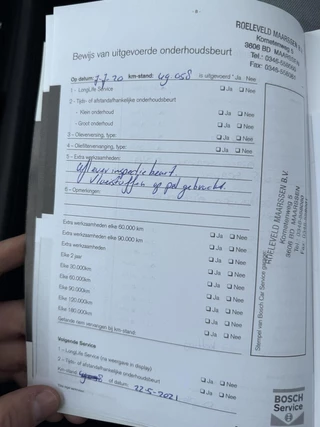 - 8 -
Bewijs van uitgevoerde onderhoudsbeurt
Op datum: 7.7.20 km-stand: 49 058 is uitgevoerd * Ja Nee
1 - LongLife Service Ja Nee
2 - Tijds- of afstandsafhankelijke onderhoudsbeurt
- Klein onderhoud Ja Nee
- Groot onderhoud Ja Nee
3 - Olieverversing, type: Ja Nee
4 - Oliefilterverversing, type: Ja Nee
5 - Extra werkzaamheden:
Afleverinspectiebeurt
vloeistoffen op peil gebracht.
6 - Opmerkingen:
Extra werkzaamheden elke 60.000 km Ja Nee
Extra werkzaamheden elke 90.000 km Ja Nee
Extra werkzaamheden Ja Nee
Elke 2 jaar Ja Nee
Elke 30.000km Ja Nee
Elke 60.000km Ja Nee
Elke 90.000km Ja Nee
Elke 120.000km Ja Nee
Elke 180.000km Ja Nee
Geplande riem vervangen bij km-stand: Ja Nee
Volgende Service
1 - LongLife Service (na weergave in display)
2 - Tijds- of afstandsafhankelijke onderhoudsbeurt Ja Nee
Km-stand of datum: 22-5-2021 Ja Nee
ROELEVELD MAARSSEN B.V.
Kometenweg 5
3606 BD MAARSSEN
Tel.: 0346-
Fax: 0346-
Stempel van Bosch Car Service garage
ROELEVELD MAARSSEN B.V.
Kometenweg 5
3606 BD MAARSSEN
BOSCH
Service